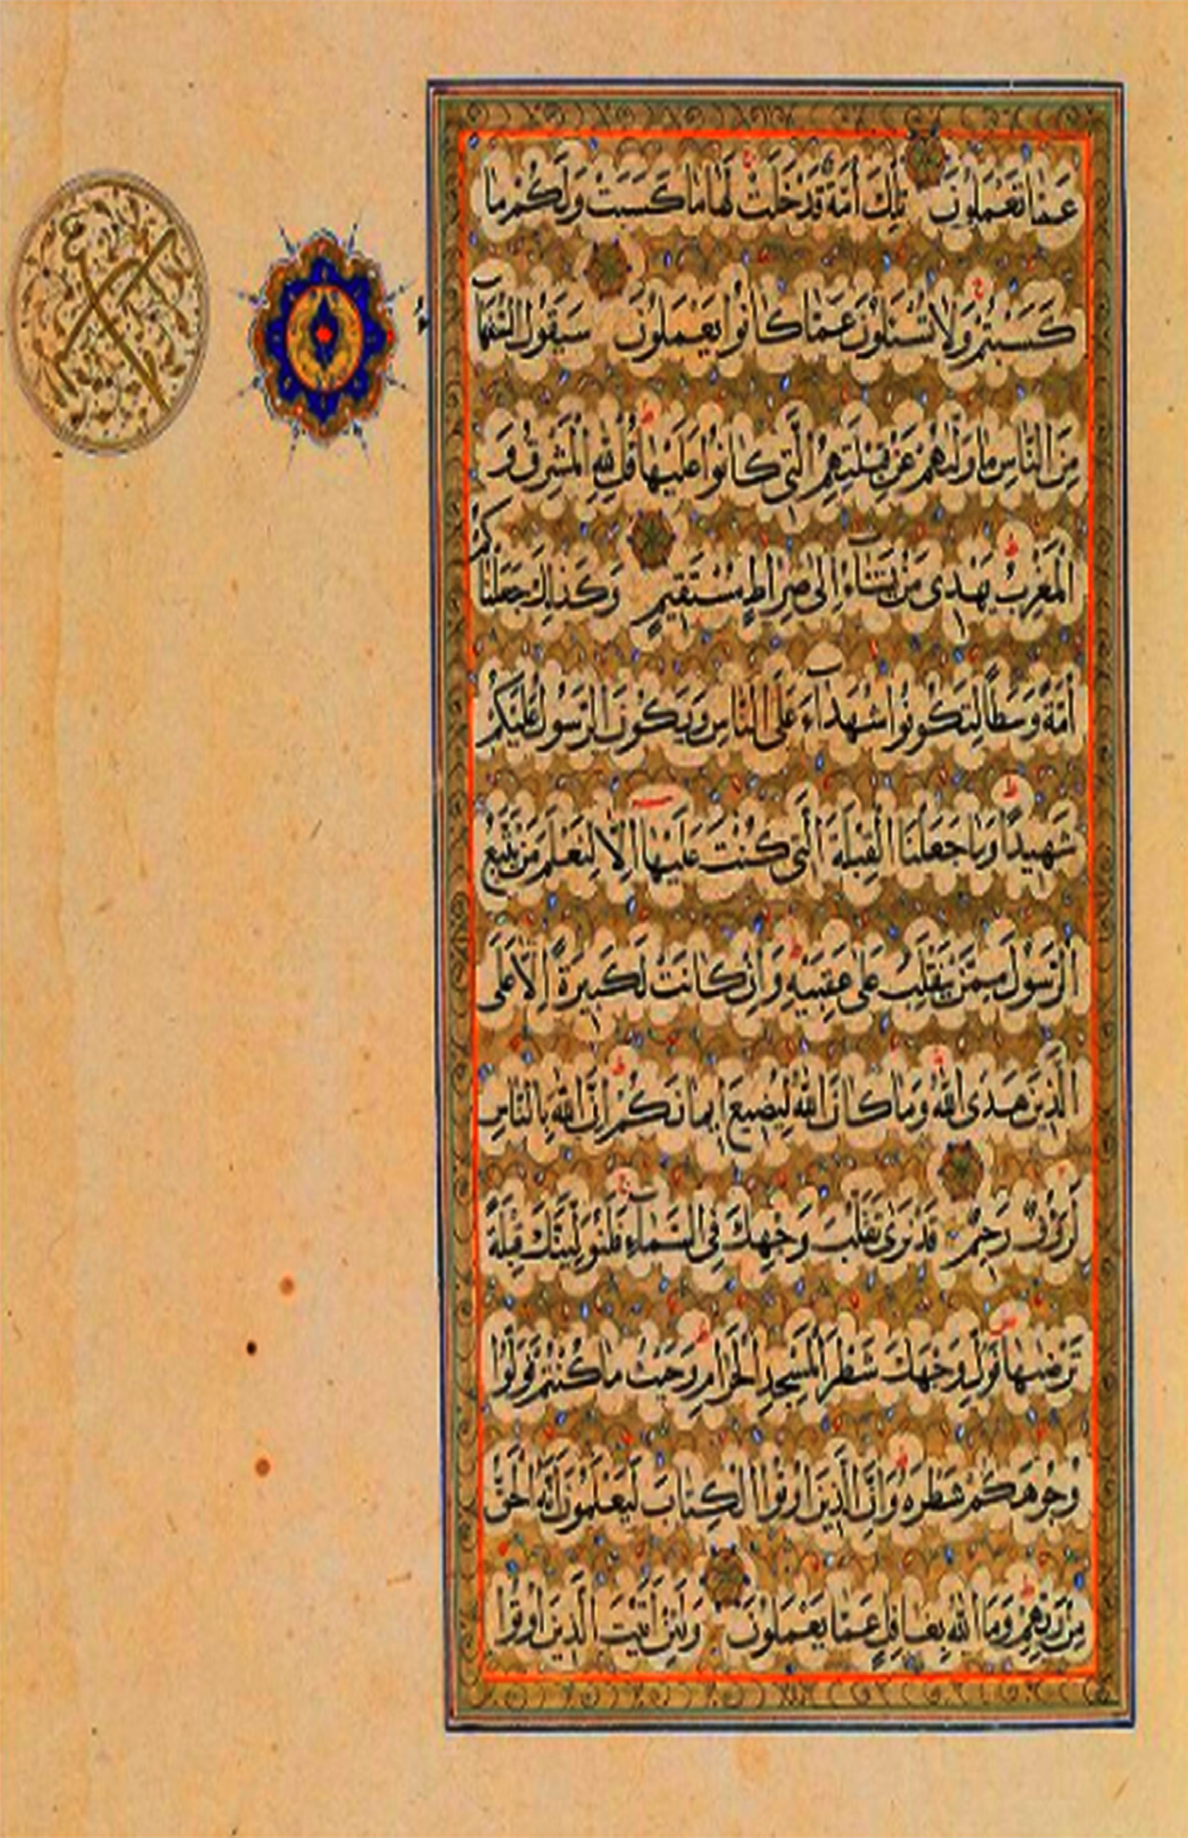 عَمَّا تَعْمَلُونَ تِلْكَ أُمَّةٌ قَدْ خَلَتْ لَهَا مَا كَسَبَتْ وَلَكُمْ مَا
كَسَبْتُمْ وَلَا تُسْئَلُونَ عَمَّا كَانُوا يَعْمَلُونَ سَيَقُولُ السُّفَهَاءُ
مِنَ النَّاسِ مَا وَلّٰهُمْ عَنْ قِبْلَتِهِمُ الَّتِى كَانُوا عَلَيْهَا قُلْ لِلّٰهِ الْمَشْرِقُ وَ
الْمَغْرِبُ يَهْدِى مَنْ يَشَاءُ إِلَى صِرَاطٍ مُسْتَقِيمٍ وَكَذٰلِكَ جَعَلْنَاكُمْ
أُمَّةً وَسَطًا لِتَكُونُوا شُهَدَاءَ عَلَى النَّاسِ وَيَكُونَ الرَّسُولُ عَلَيْكُمْ
شَهِيدًا وَمَا جَعَلْنَا الْقِبْلَةَ الَّتِى كُنْتَ عَلَيْهَا إِلَّا لِنَعْلَمَ مَنْ يَتَّبِعُ
الرَّسُولَ مِمَّنْ يَنْقَلِبُ عَلَى عَقِبَيْهِ وَإِنْ كَانَتْ لَكَبِيرَةً إِلَّا عَلَى
الَّذِينَ هَدَى اللّٰهُ وَمَا كَانَ اللّٰهُ لِيُضِيعَ إِيمَانَكُمْ إِنَّ اللّٰهَ بِالنَّاسِ
لَرَؤُفٌ رَحِيمٌ قَدْ نَرَى تَقَلُّبَ وَجْهِكَ فِى السَّمَاءِ فَلَنُوَلِّيَنَّكَ قِبْلَةً
تَرْضٰيهَا فَوَلِّ وَجْهَكَ شَطْرَ الْمَسْجِدِ الْحَرَامِ وَحَيْثُ مَا كُنْتُمْ فَوَلُّوا
وُجُوهَكُمْ شَطْرَهُ وَإِنَّ الَّذِينَ أُوتُوا الْكِتَابَ لَيَعْلَمُونَ أَنَّهُ الْحَقُّ
مِنْ رَبِّهِمْ وَمَا اللّٰهُ بِغَافِلٍ عَمَّا يَعْمَلُونَ وَلَئِنْ أَتَيْتَ الَّذِينَ أُوتُوا